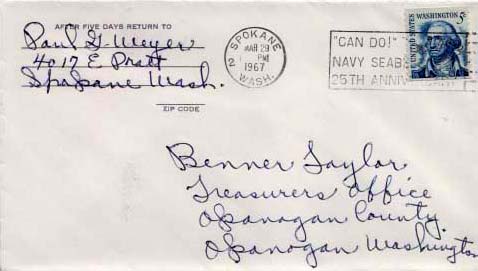 AFTER FIVE DAYS RETURN TO
Paul G. Meyer
4017 E. Pratt
Spokane Wash.
ZIP CODE
SPOKANE
MAR 29
PM
1967
2
WASH.
"CAN DO!"
NAVY SEAB
25TH ANNIV
WASHINGTON 5c
UNITED STATES
Benner Taylor
Treasurers Office
Okanogan County
Okanogan Washington